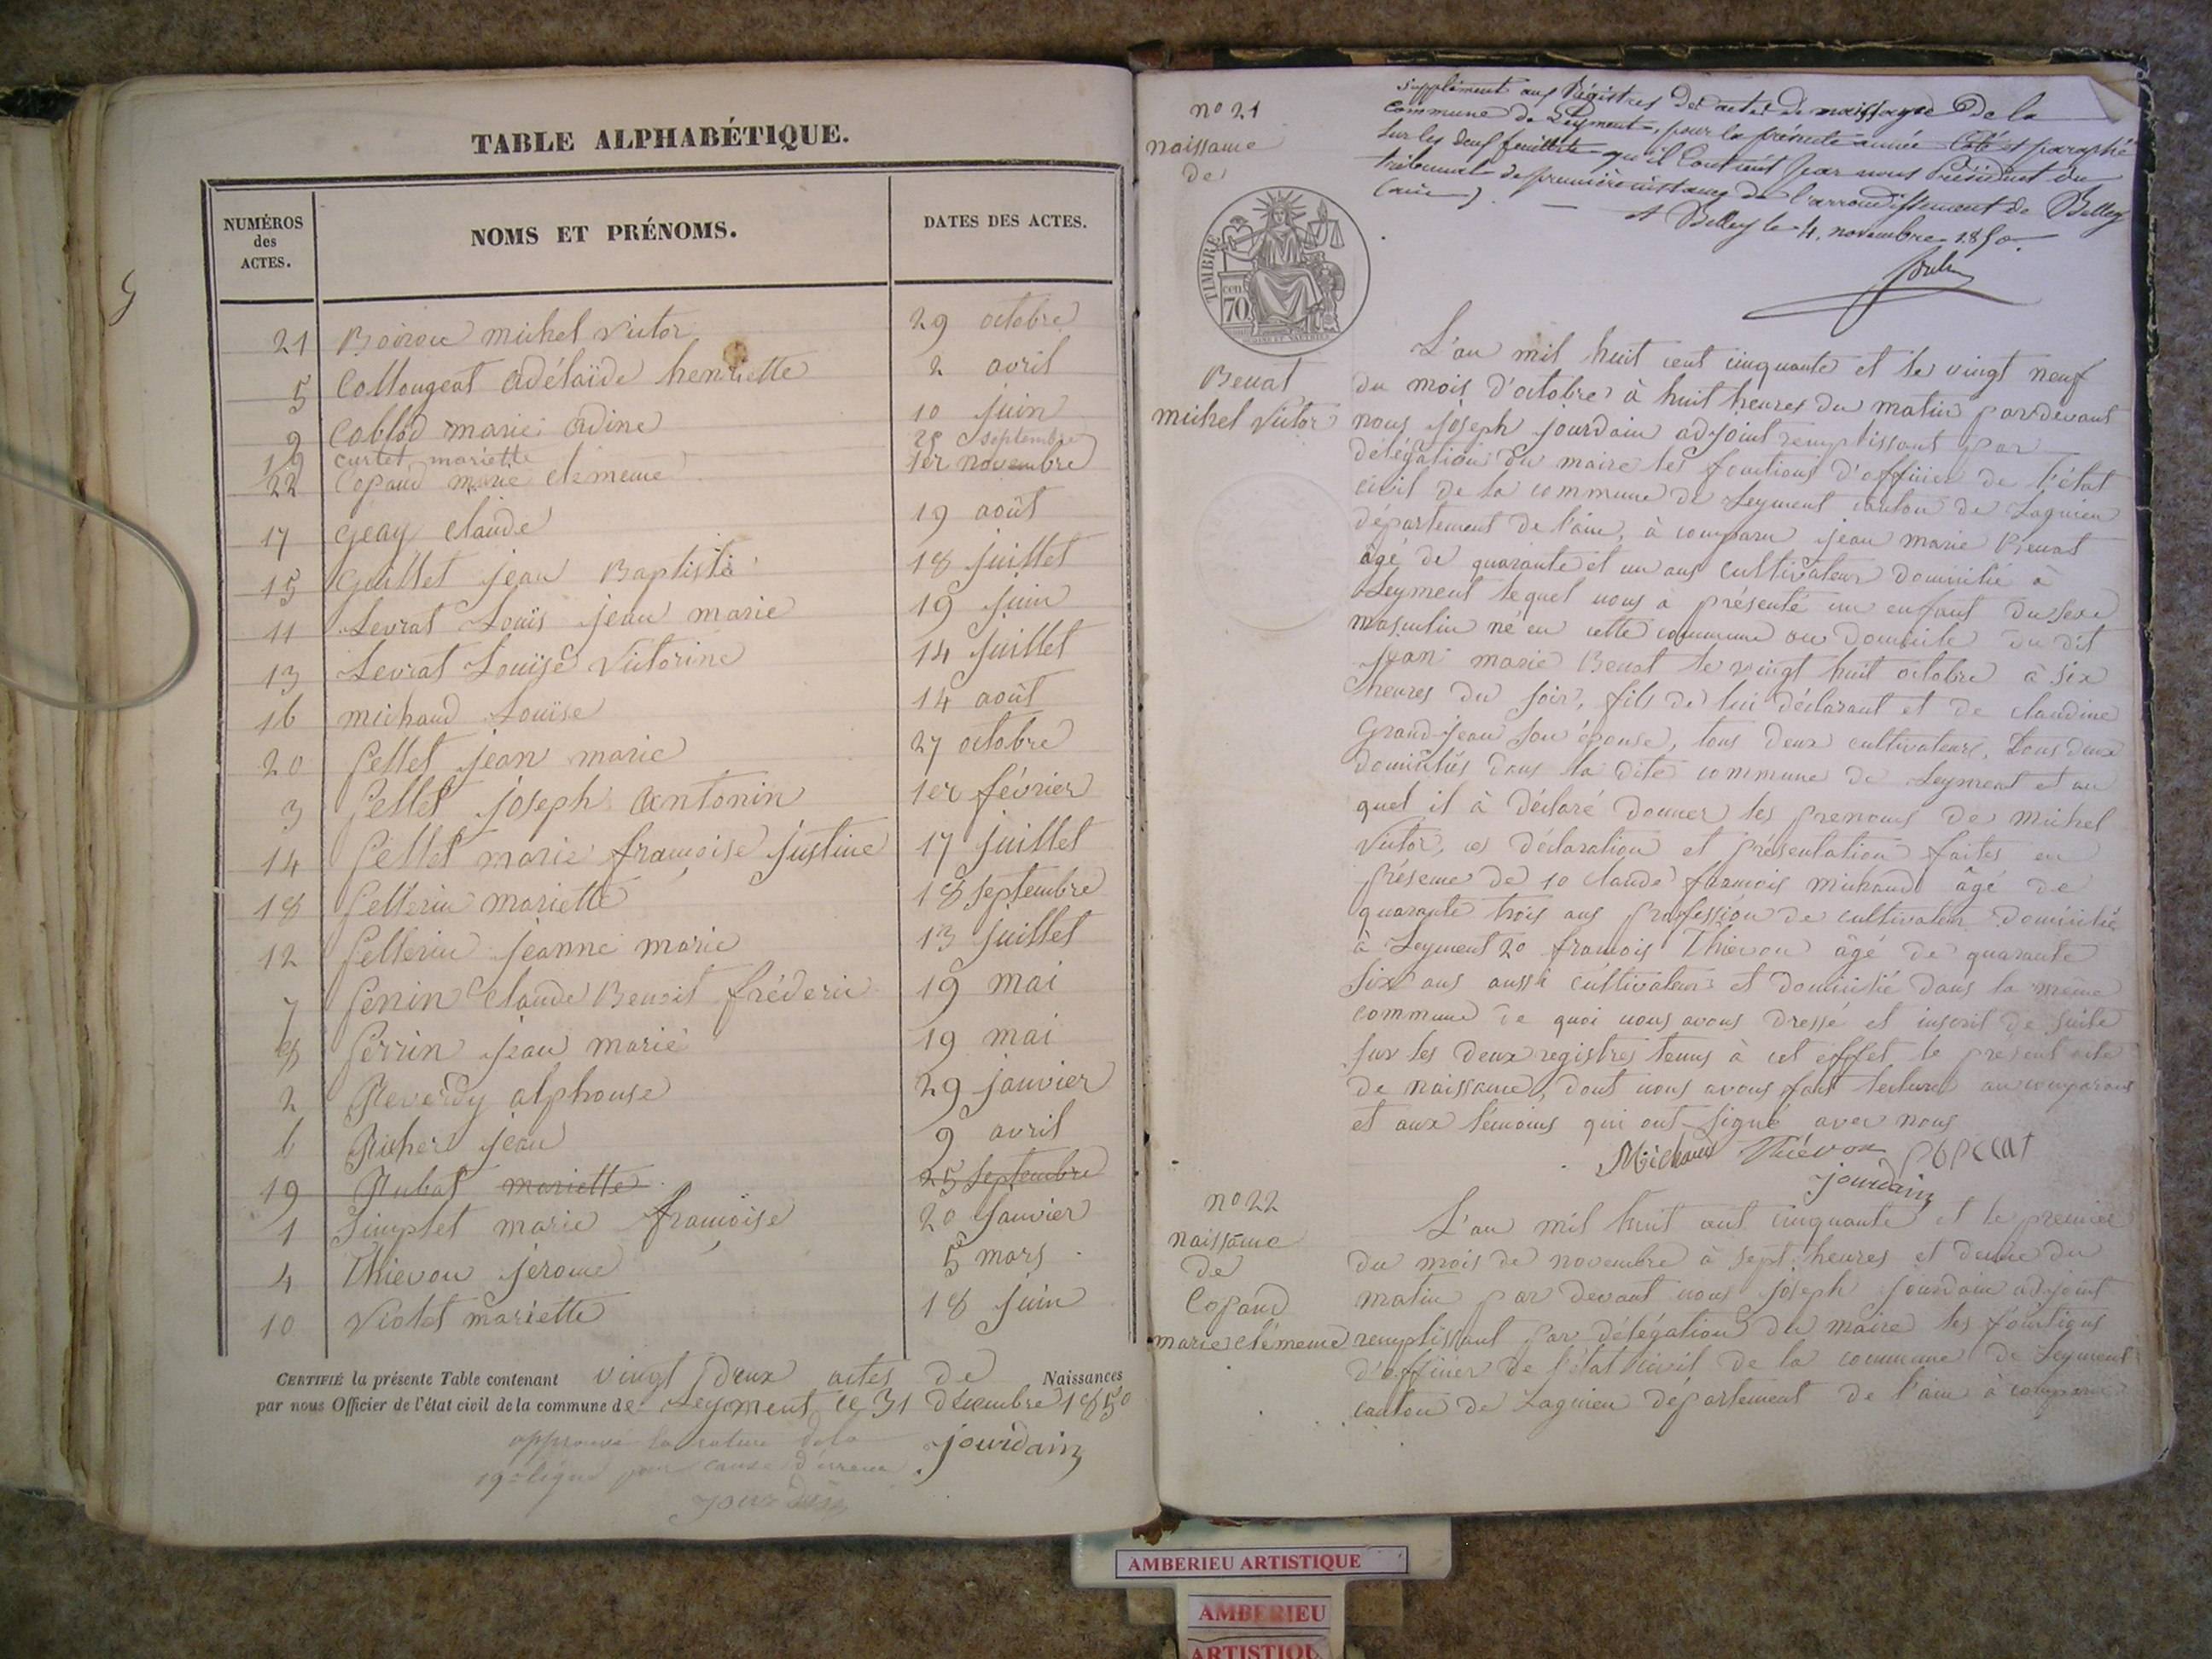 TABLE ALPHABÉTIQUE.
NUMÉROS des ACTES. NOMS ET PRÉNOMS. DATES DES ACTES.
21 michel Victor 29 octobre
5 Collougeat adélaïde henriette 2 avril
9 Coblod marie adine 10 juin
19 curtet mariette 25 septembre
22 Copand marie clémence 1er novembre
17 geay claude 19 août
15 Guillet jean Baptiste 18 juillet
11 Levrat Louis jean marie 19 juin
13 Levrat Louise Victorine 14 juillet
16 michaud Louise 14 août
20 Pellet jean marie 27 octobre
3 Pellet joseph antonin 1er février
14 Pellet marie françoise justine 17 juillet
18 Pellerin mariette 18 septembre
12 Pellerin jeanne marie 13 juillet
7 Penin claude Benoit fréderic 19 mai
8 Perrin jean marie 19 mai
2 Reverdy alphonse 29 janvier
6 Richer jean 9 avril
19 Rubat mariette 25 septembre
1 Simplet marie françoise 20 janvier
4 Thievon jerome 5 mars
10 Violet mariette 18 juin
CERTIFIÉ la présente Table contenant vingt deux actes de Naissances
par nous Officier de l'état civil de la commune de Leyment ce 31 décembre 1850
approuvé la rature de la
19e ligne pour cause d'erreur
jourdain
jourdain
supplément aux Régistres des actes de naissance de la
commune de Leyment, pour la présente année Coté et paraphé
sur les deux feuillets qu'il contient par nous Président du
tribunal de première instance de l'arrondissement de Belley
(ain).
A Belley le 4. novembre 1850.
no 21
naissance
de
TIMBRE
cen
70
Benat
michel Victor
L'an mil huit cent cinquante et le vingt neuf
du mois d'octobre à huit heures du matin pardevant
nous joseph jourdain adjoint remplissant par
délégation du maire les fonctions d'officier de l'état
civil de la commune de Leyment canton de Lagnieu
département de l'ain, à comparu jean marie Benat
âgé de quarante et un ans cultivateur domicilié à
Leyment lequel nous a présenté un enfant du sexe
masculin né en cette commune au domicile du dit
jean marie Benat le vingt huit octobre à six
heures du soir, fils de lui déclarant et de claudine
Grand-jean son épouse, tous deux cultivateurs, tous deux
domiciliés dans la dite commune de Leyment et au
quel il à déclaré donner les prenoms de michel
Victor, ces déclaration et présentation faites en
présence de 1o claude françois michaud âgé de
quarante trois ans profession de cultivateur domicilié
à Leyment 2o francois Thievon âgé de quarante
six ans aussi cultivateur et domicilié dans la même
commune de quoi nous avons dressé et inscrit de suite
sur les deux registres tenus à cet effet le présent acte
de naissance, dont nous avons fait lecture au comparant
et aux témoins qui ont signé avec nous
Michaud Thiévon
jourdain
no 22
naissance
de
Copand
marie clémence
L'an mil huit cent cinquante et le premier
du mois de novembre à sept heures et demie du
matin par devant nous joseph jourdain adjoint
remplissant par délégation du maire les fonctions
d'officier de l'état civil de la commune de Leyment
canton de Lagnieu département de l'ain à comparu
AMBERIEU ARTISTIQUE
AMBERIEU
ARTISTIQU